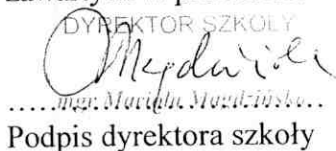 DYREKTOR SZKOŁY
mgr Mariola Magdzińska
Podpis dyrektora szkoły